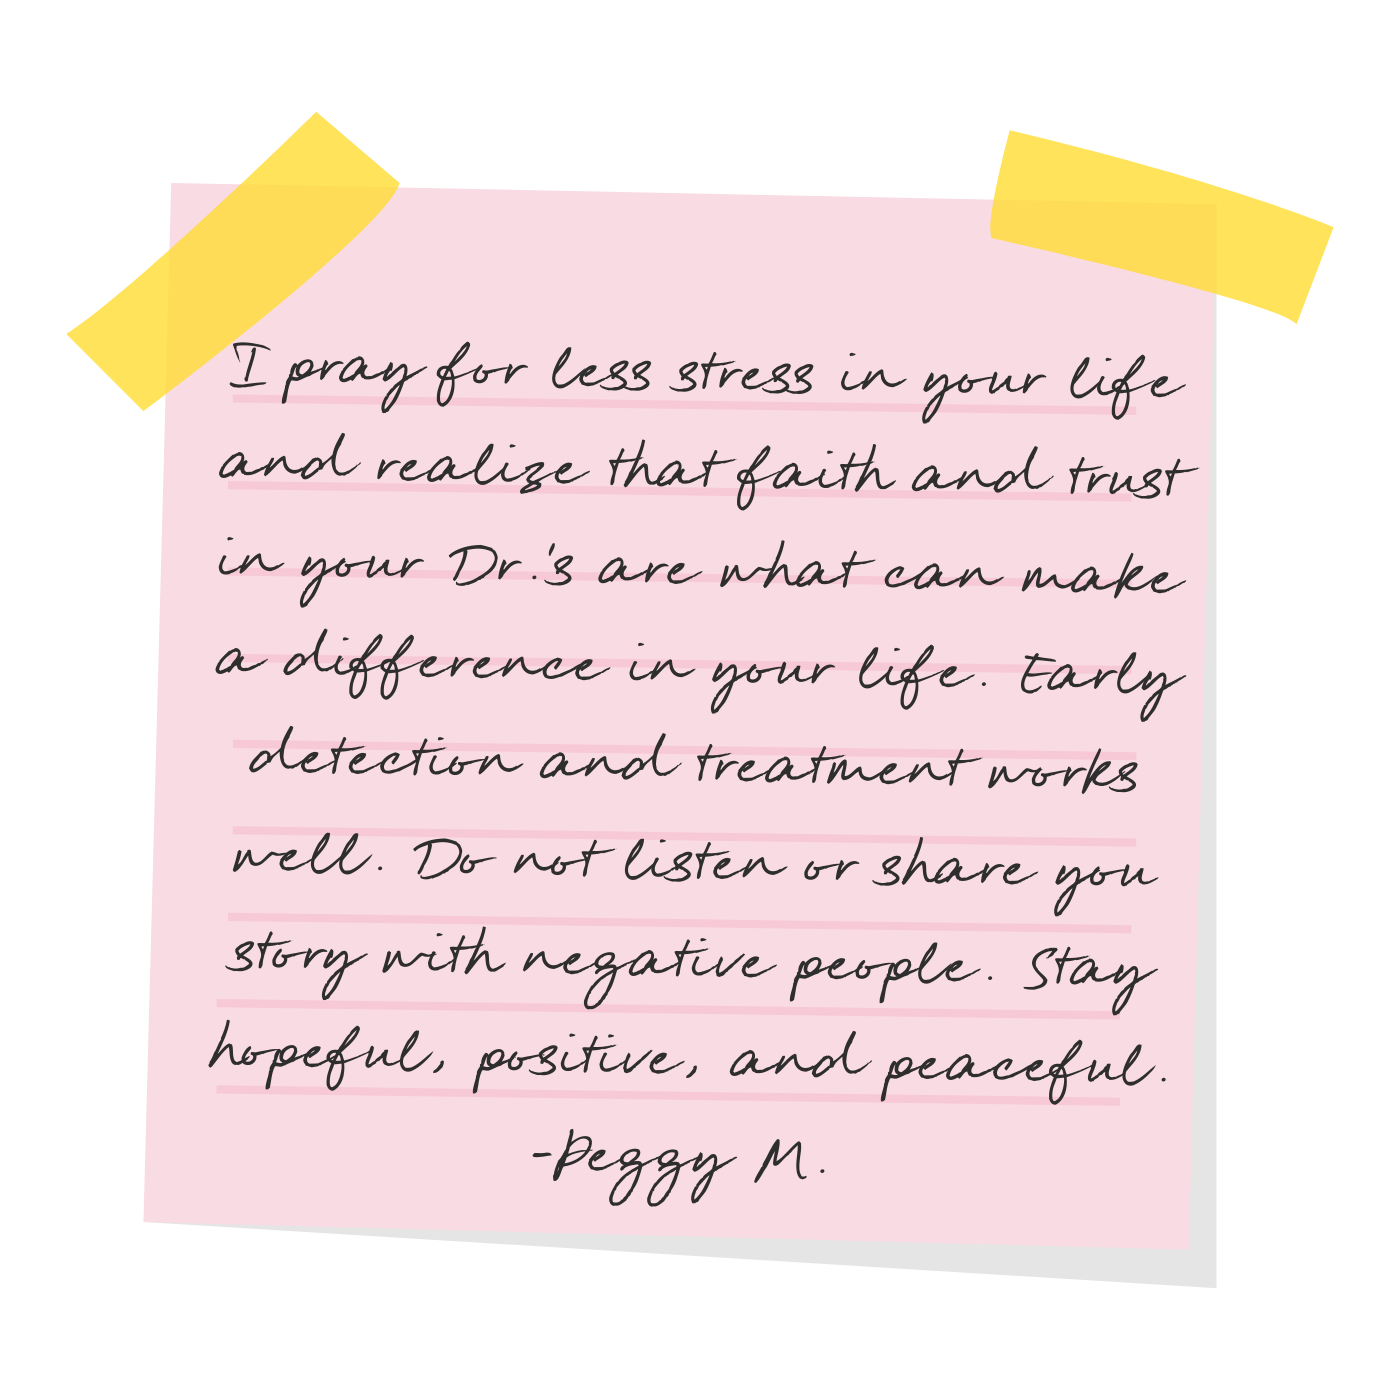 I pray for less stress in your life
and realize that faith and trust
in your Dr.'s are what can make
a difference in your life. Early
detection and treatment works
well. Do not listen or share you
story with negative people. Stay
hopeful, positive, and peaceful.
-Peggy M.